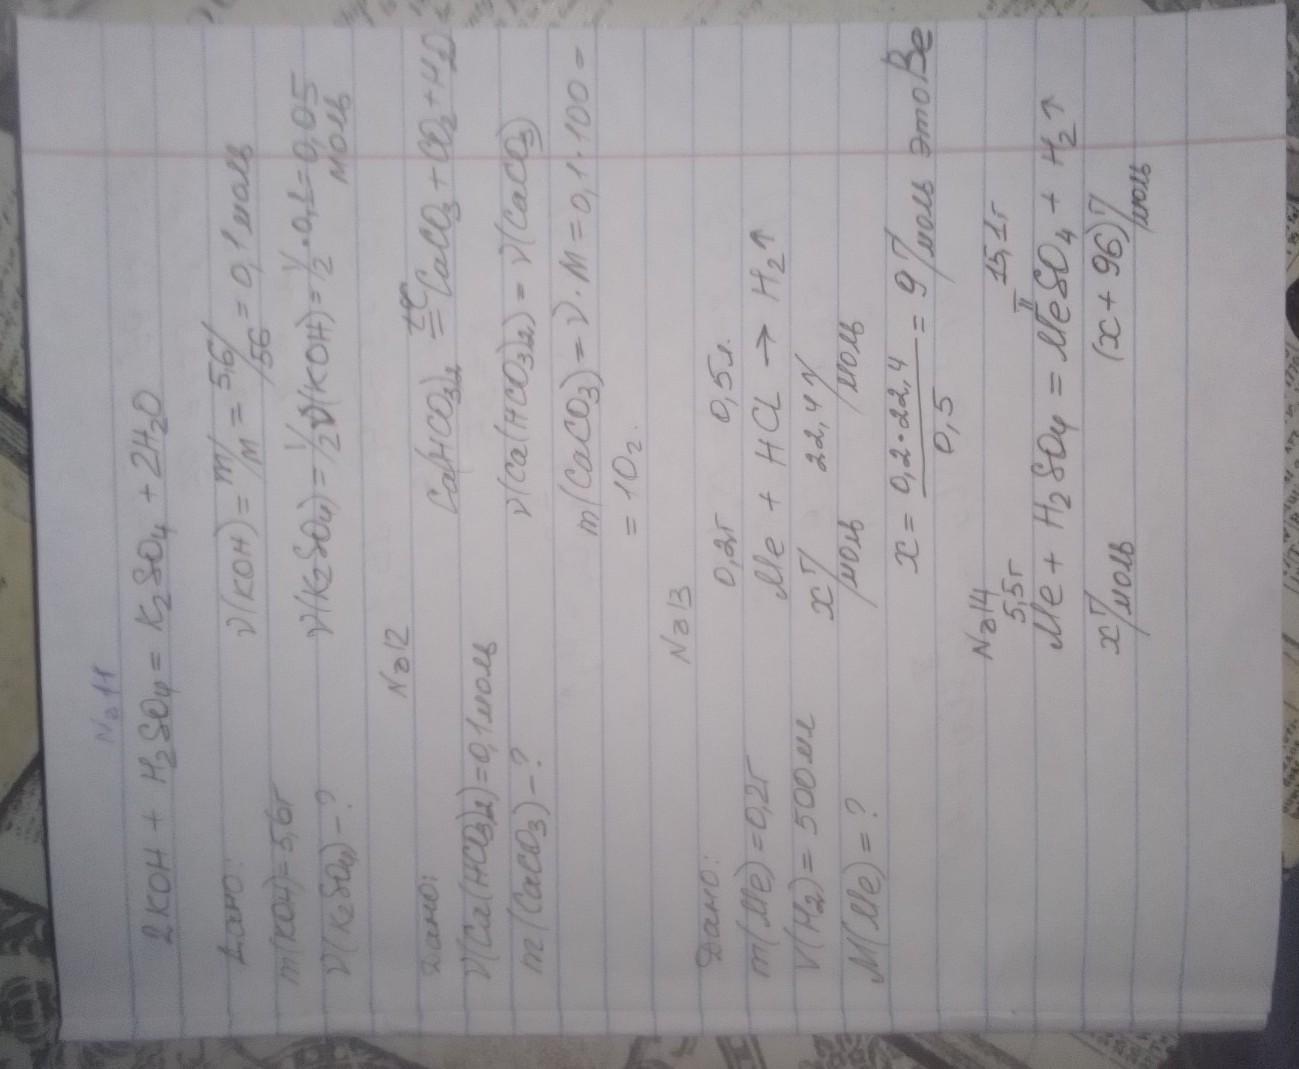 №11
2KOH + H₂SO₄ = K₂SO₄ + 2H₂O
Дано:
m(KOH)=5,6г
ν(K₂SO₄)-?
ν(KOH) = m/M = 5,6/56 = 0,1моль
ν(K₂SO₄) = 1/2 ν(KOH) = 1/2 · 0,1 = 0,05
моль
№12
Дано:
ν(Ca(HCO₃)₂)=0,1моль
m(CaCO₃)-?
Ca(HCO₃)₂ = CaCO₃ + CO₂ + H₂O
ν(Ca(HCO₃)₂) = ν(CaCO₃)
m(CaCO₃) = ν · M = 0,1 · 100 =
= 10г.
№13
Дано:
m(Me)=0,2г
V(H₂)= 500мл
M(Me)=?
0,2г 0,5л.
Me + HCl → H₂↑
x г/моль 22,4 л/моль
x = 0,2·22,4/0,5 = 9 г/моль это Be
№14
5,5г 15,1г
Me + H₂SO₄ = MeSO₄ + H₂↑
II
x г/моль (x + 96) г/моль